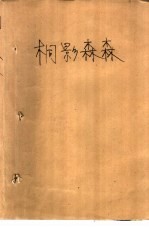 桐影森森